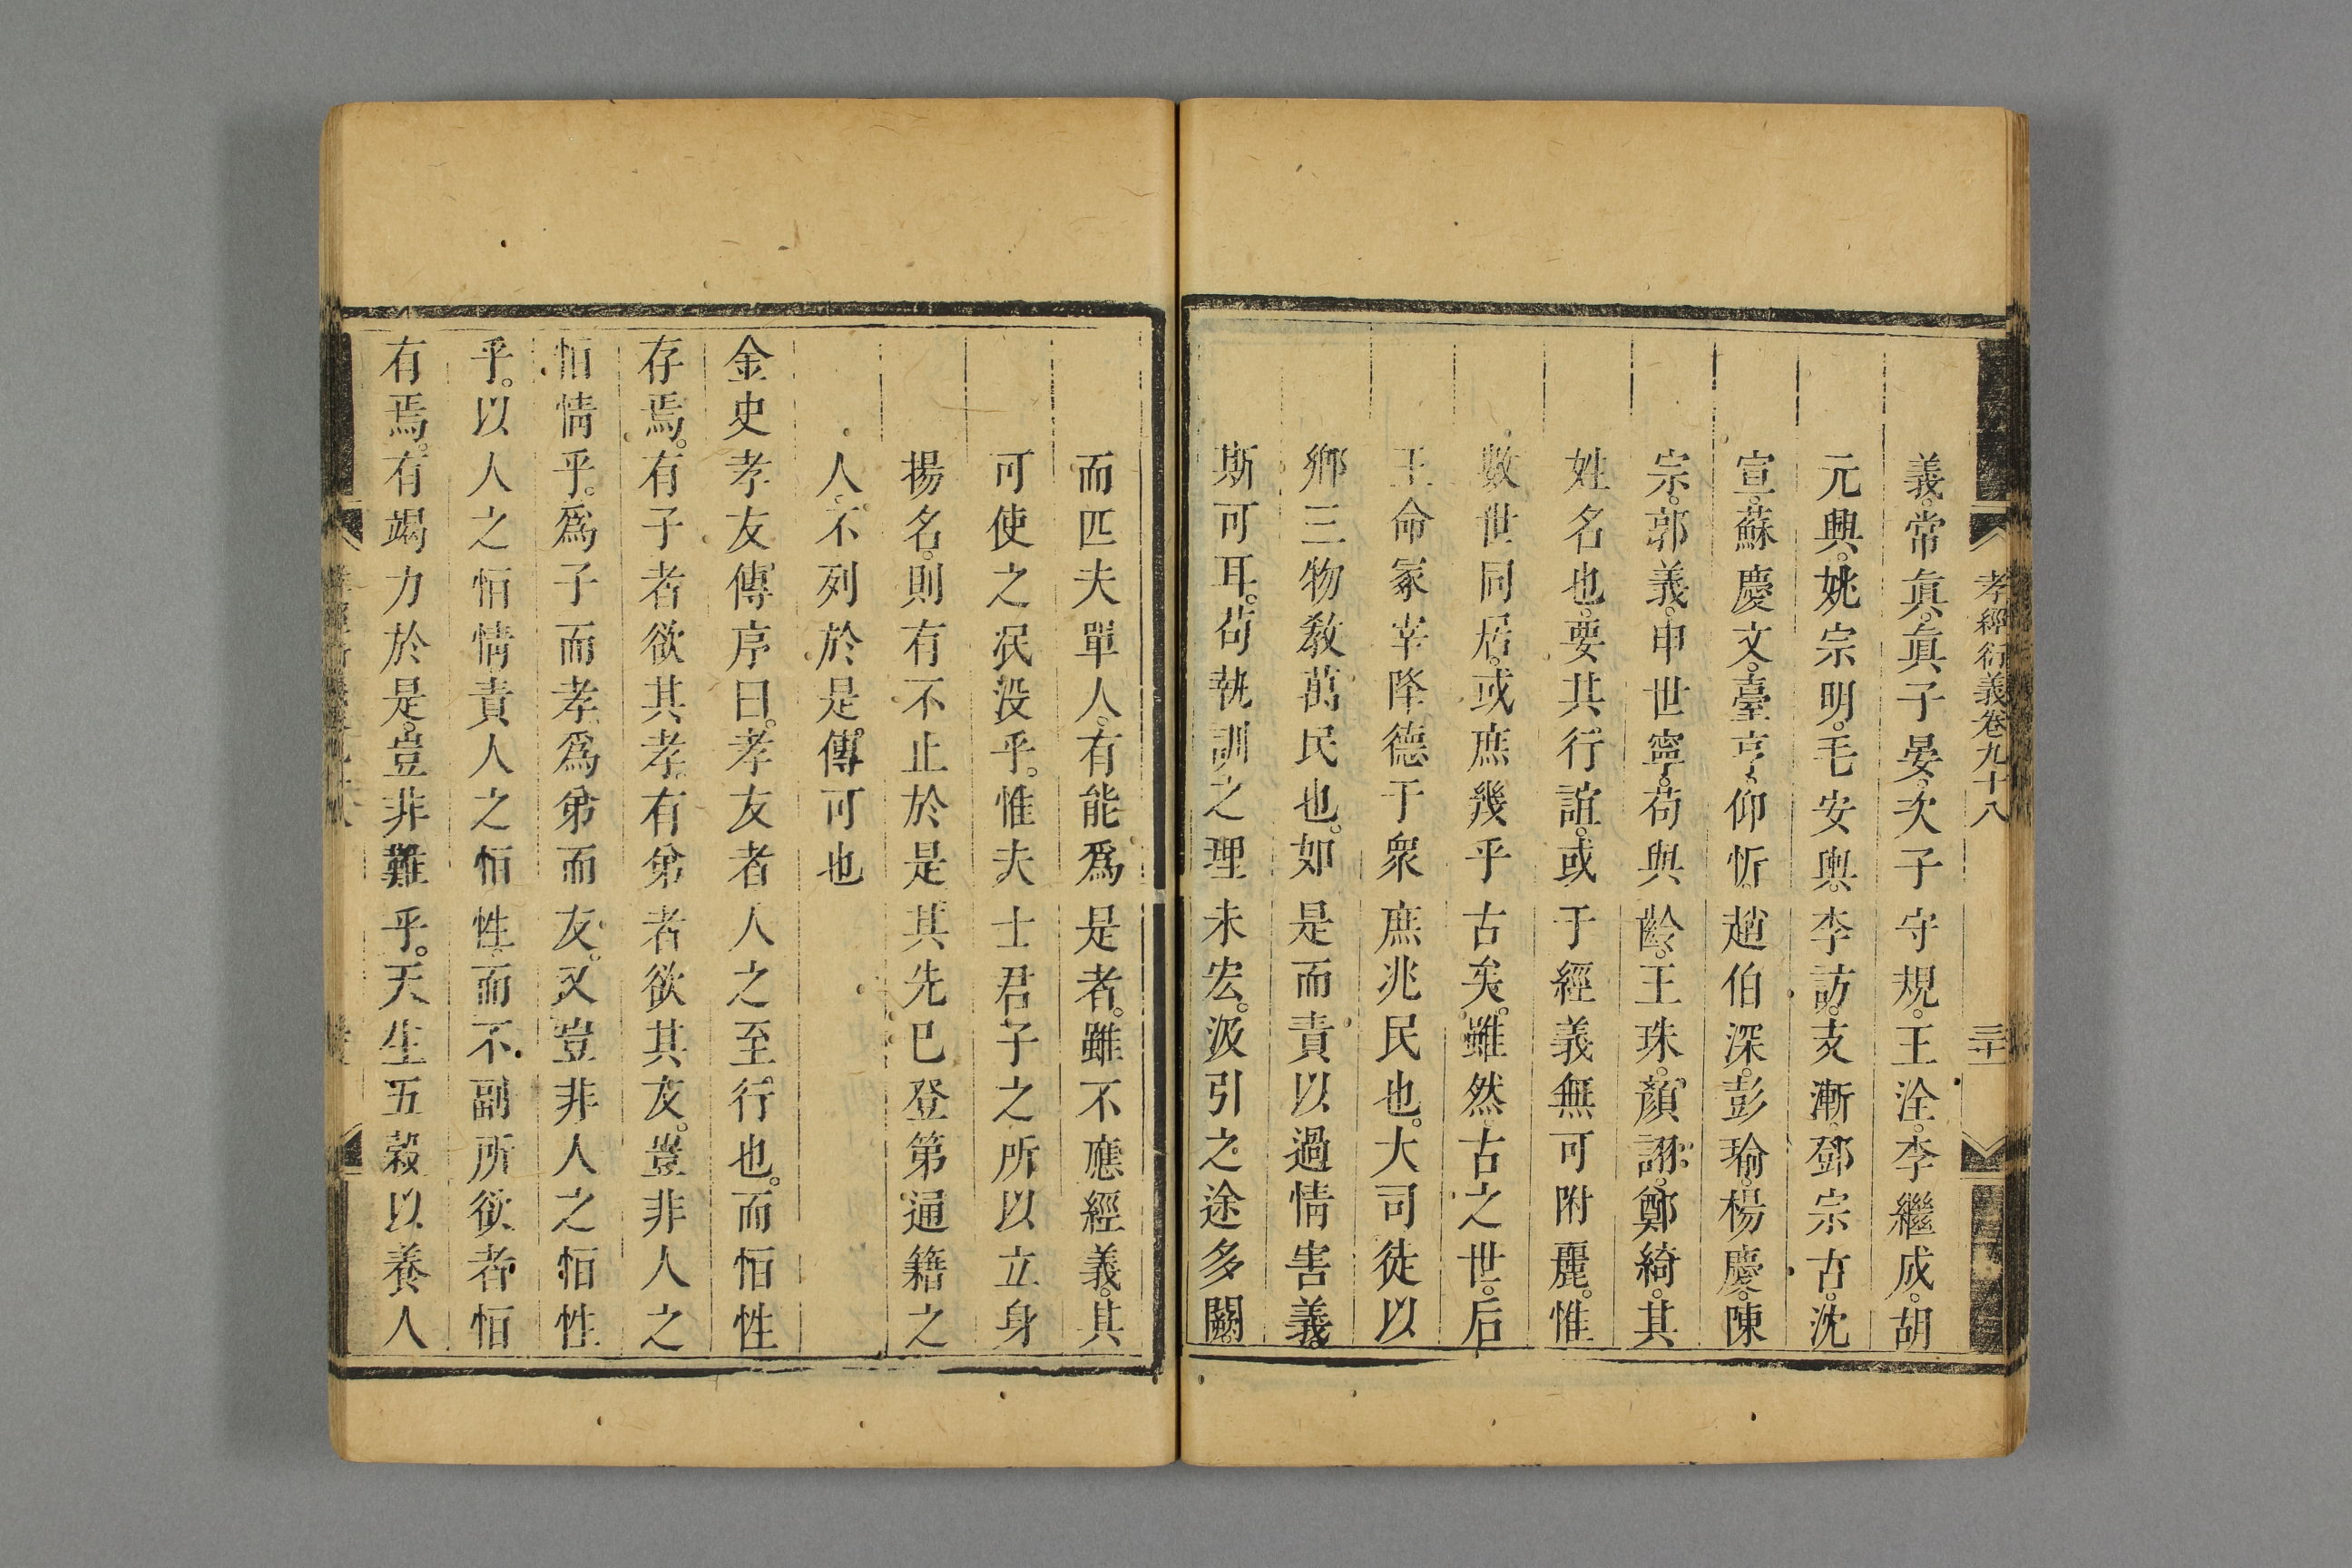 孝經衍義卷九十八 三十一
義。常眞。眞子晏。次子守規。王洤。李繼成。胡
元興。姚宗明。毛安輿。李訪。支漸。鄧宗古。沈
宣。蘇慶文。臺亨。仰忻。趙伯深。彭瑜。楊慶。陳
宗。郭義。申世寧。苟與齡。王珠。顏詡。鄭綺。其
姓名也。要其行誼。或于經義無可附麗。惟
數世同居。或庶幾乎古矣。雖然。古之世。后
王命冢宰降德于衆庶兆民也。大司徒以
鄉三物敎萬民也。如是而責以過情害義。
斯可耳。苟執訓之理未宏。汲引之途多闕。
而匹夫單人。有能爲是者。雖不應經義。其
可使之泯沒乎。惟夫士君子之所以立身
揚名。則有不止於是。其先已登第通籍之
人。不列於是傳。可也
金史孝友傳序曰。孝友者人之至行也。而恒性
存焉。有子者欲其孝。有弟者欲其友。豈非人之
恒情乎。爲子而孝。爲弟而友。又豈非人之恒性
乎。以人之恒情責人之恒性。而不副所欲者恒
有焉。有竭力於是。豈非難乎。天生五穀以養人